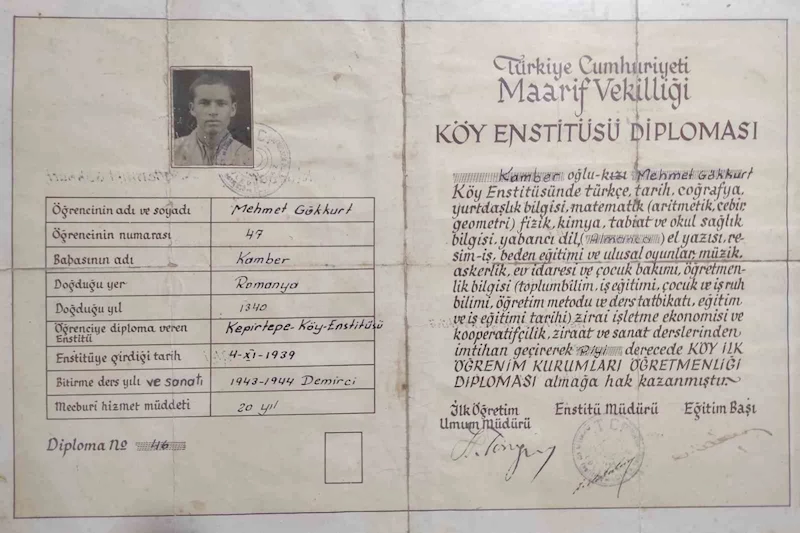 Öğrencinin adı ve soyadı Mehmet Gökkurt
Öğrencinin numarası 47
Babasının adı Kamber
Doğduğu yer Romanya
Doğduğu yıl 1340
Öğrenciye diploma veren Enstitü Kepirtepe-Köy-Enstitüsü
Enstitüye girdiği tarih 4-XI-1939
Bitirme ders yılı ve sanatı 1943-1944 Demirci
Mecburi hizmet müddeti 20 yıl
Diploma No 46
Türkiye Cumhuriyeti
Maarif Vekilliği
KÖY ENSTİTÜSÜ DİPLOMASI
Kamber oğlu-kızı Mehmet Gökkurt
Köy Enstitüsünde türkçe, tarih, coğrafya,
yurtdaşlık bilgisi, matematik (aritmetik, cebir,
geometri) fizik, kimya, tabiat ve okul sağlık
bilgisi, yabancı dil, (Almanca) el yazısı, re-
sim-iş, beden eğitimi ve ulusal oyunlar, müzik,
askerlik, ev idaresi ve çocuk bakımı, öğretmen-
lik bilgisi (toplumbilim, iş eğitimi, çocuk ve iş ruh
bilimi, öğretim metodu ve ders tatbikatı, eğitim
ve iş eğitimi tarihi) zirai işletme ekonomisi ve
kooperatifçilik, ziraat ve sanat derslerinden
imtihan geçirerek derecede KÖY İLK
ÖĞRENİM KURUMLARI ÖĞRETMENLİĞİ
DİPLOMASI almağa hak kazanmıştır.
İlk Öğretim Umum Müdürü
Enstitü Müdürü
Eğitim Başı
T.C.
T.C.